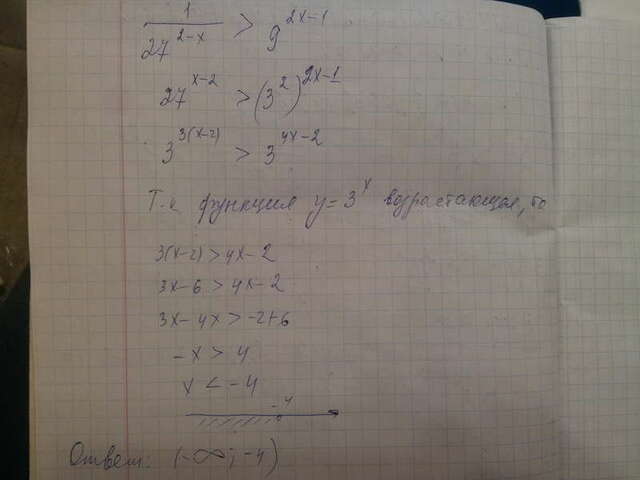 1/27^(2-x) > 9^(2x-1)
27^(x-2) > (3^2)^(2x-1)
3^(3(x-2)) > 3^(4x-2)
Т.к функция y=3^x возрастающая, то
3(x-2)>4x-2
3x-6>4x-2
3x-4x>-2+6
-x>4
x<-4
-4
Ответ: (-∞; -4)